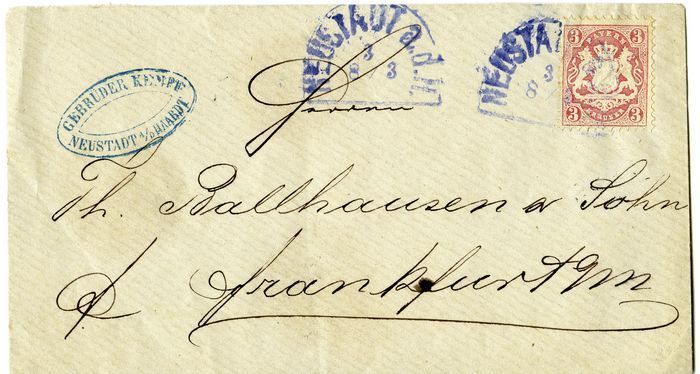 NEUSTADT a.d.H.
3
8/3
NEUSTA
3
8
3 BAYERN 3
3 KREUZER 3
GEBRÜDER KEMPF
NEUSTADT A/D HAARDT
Herren
Th. Ballhausen & Sohn
Frankfurt a/M